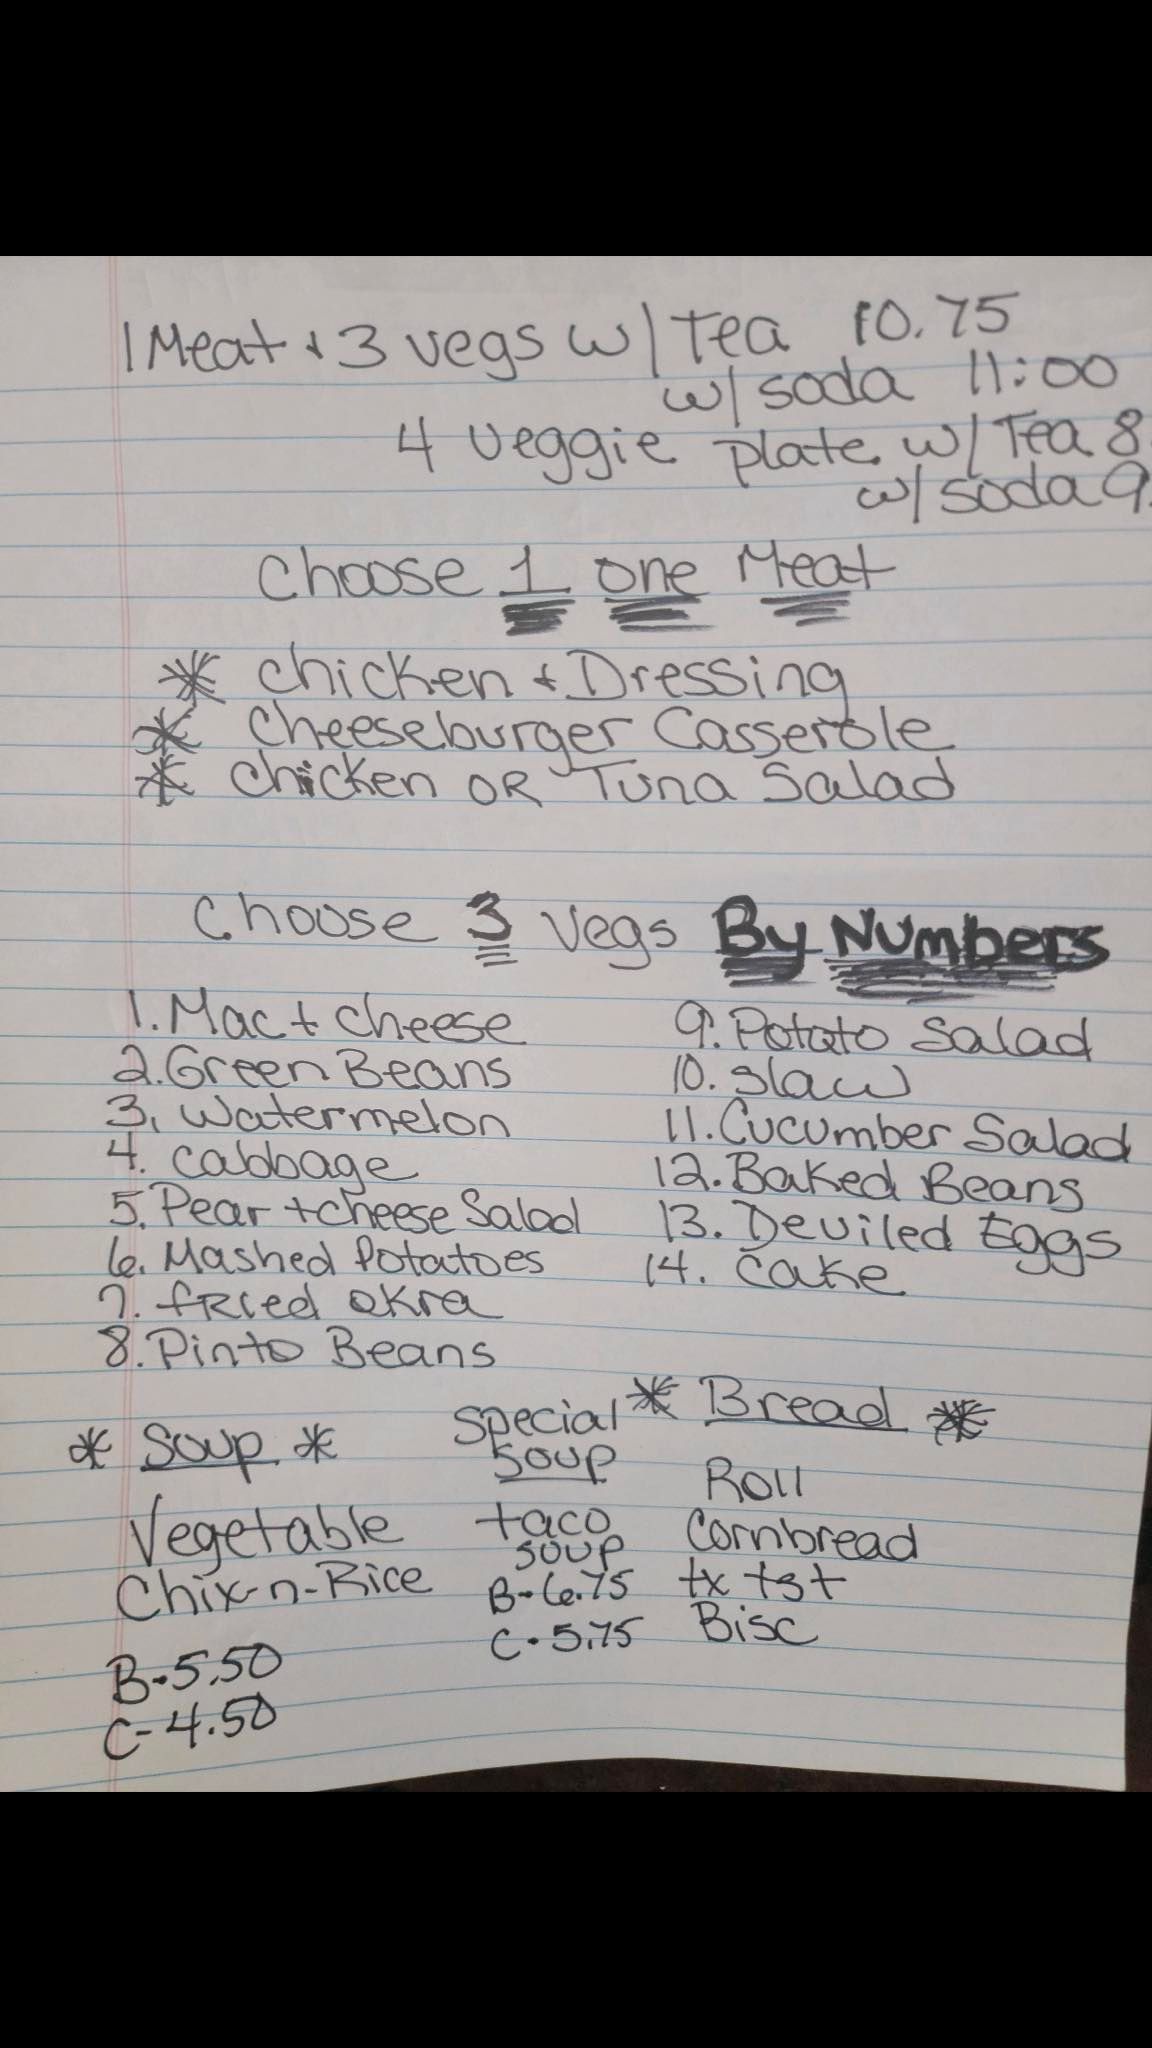 1 Meat + 3 vegs w/ Tea 10.75
w/ soda 11:00
4 veggie plate w/ Tea 8.
w/ soda 9.
Choose 1 one Meat
* Chicken + Dressing
* Cheeseburger Casserole
* Chicken OR Tuna Salad
Choose 3 Vegs By Numbers
1. Mac + cheese
2. Green Beans
3. Watermelon
4. Cabbage
5. Pear + cheese Salad
6. Mashed Potatoes
7. fried okra
8. Pinto Beans
9. Potato Salad
10. Slaw
11. Cucumber Salad
12. Baked Beans
13. Deviled Eggs
14. Cake
* Soup *
Vegetable
Chix-n-Rice
B-5.50
C-4.50
Special
Soup
taco
soup
B-6.75
C-5.75
* Bread *
Roll
Cornbread
tx tst
Bisc